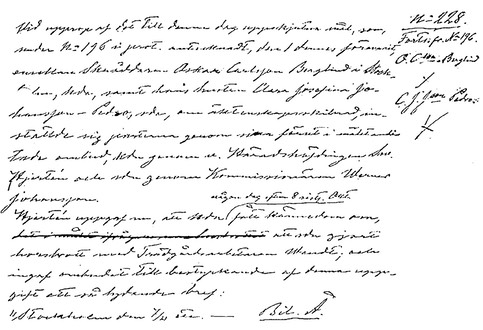 Vid upprop af det till denna dag uppskjutna mål, som,
under N:o 196 i prot. antecknadt, den 1 dennes förevarit,
emellan Skräddaren Oskar Carlsson Berglind i Stock-
holm, kde, samt hans hustru Clara Josefina Jo-
hansson-Pedro, sde, om äktenskapsskilnad, in-
stälde sig parterna genom sina förut i målet antec-
nade ombud, kde genom v. Häradshöfdingen
Hjertén och sde genom Kommissionären Werner
Johansson.
någon dag efter 8 sistl. Okt.
Hjertén uppgaf nu, att kde fått kännedom om,
att sde gjort
horsbrott med Trädgårdsarbetaren Wendt, och
ingaf ombudet till bestyrkande af denna upp-
gift ett så lydande bref:
"Stockholm den etc. — Bil. A.
N:o 228.
Forts. fr. N:o 196.
O. C:son Berglind
/
C. J. J:son Pedro